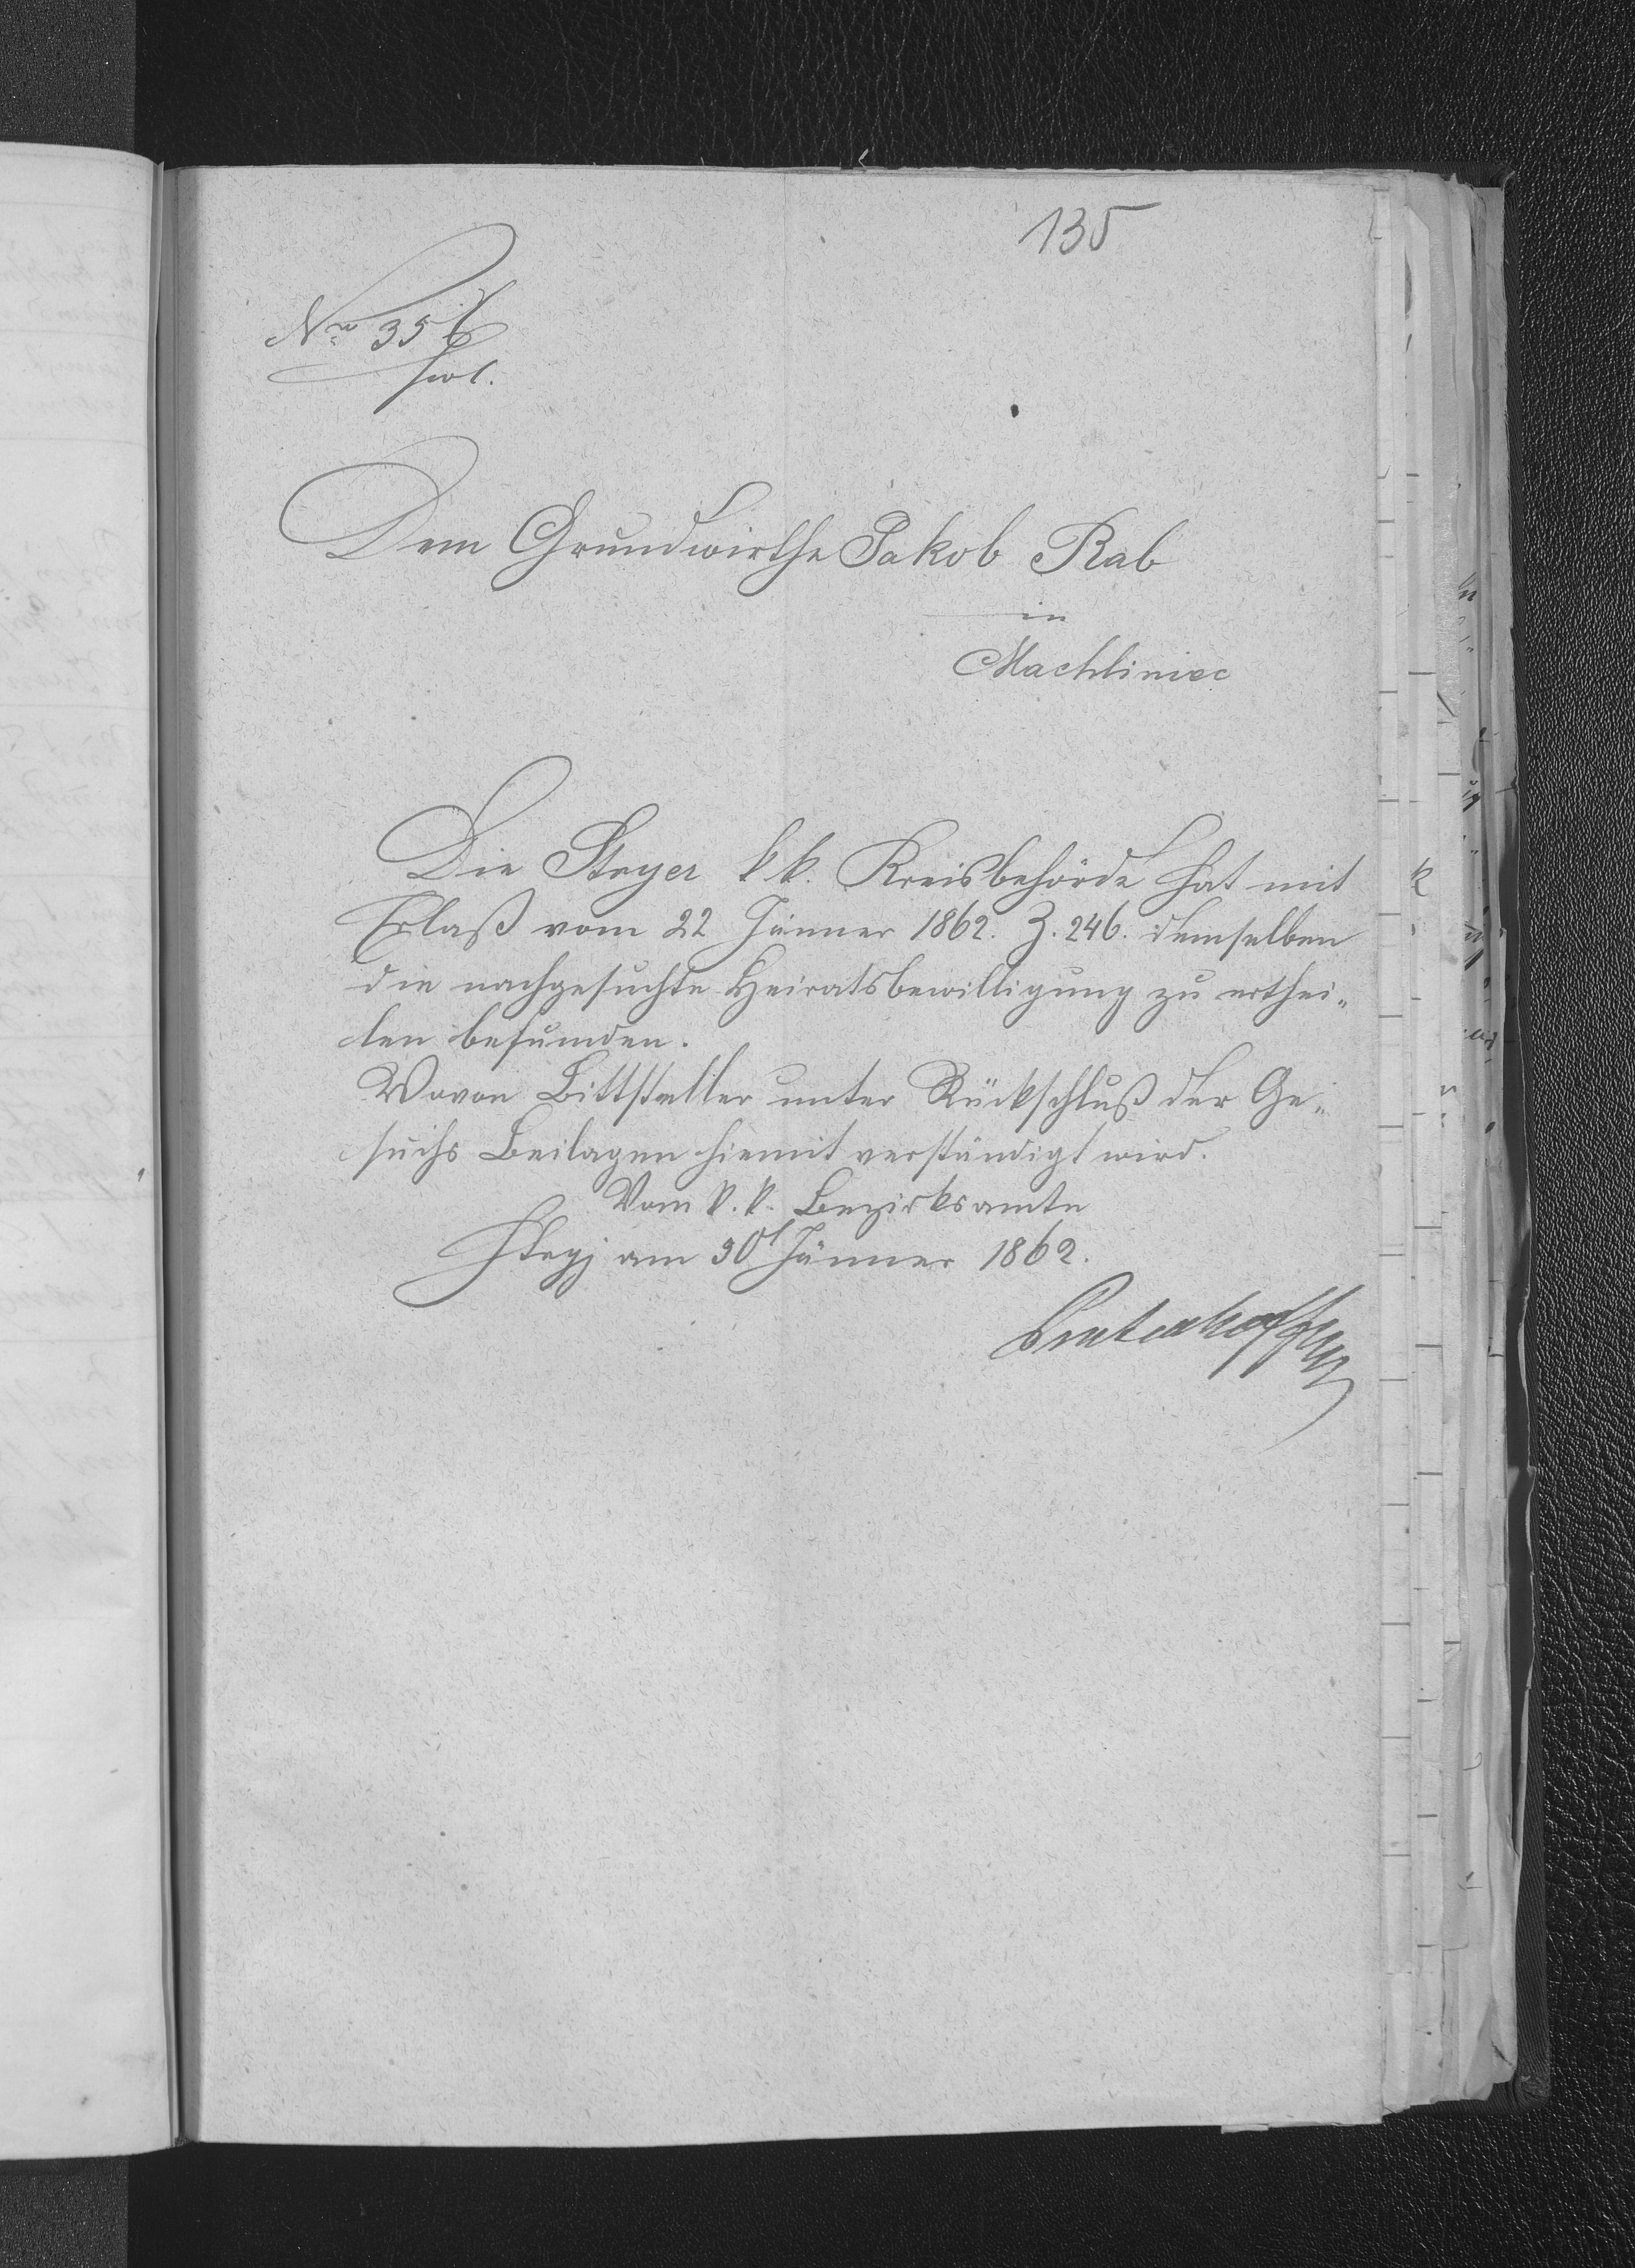 135
Nro 356
Dem Grundwirthe Jakob Rab
in
Machliniec
Die Stryer k k. Kreisbehörde hat mit
Erlaß vom 22 Jänner 1862. Z. 246. demselben
die nachgesuchte Heiratsbewilligung zu erthei„
len befunden.
Wovon Bittsteller unter Rückschluß der Ge„
suchs Beilagen hiemit verständigt wird.
Vom k. k. Bezirksamte
Stryj am 30t Jänner 1862.